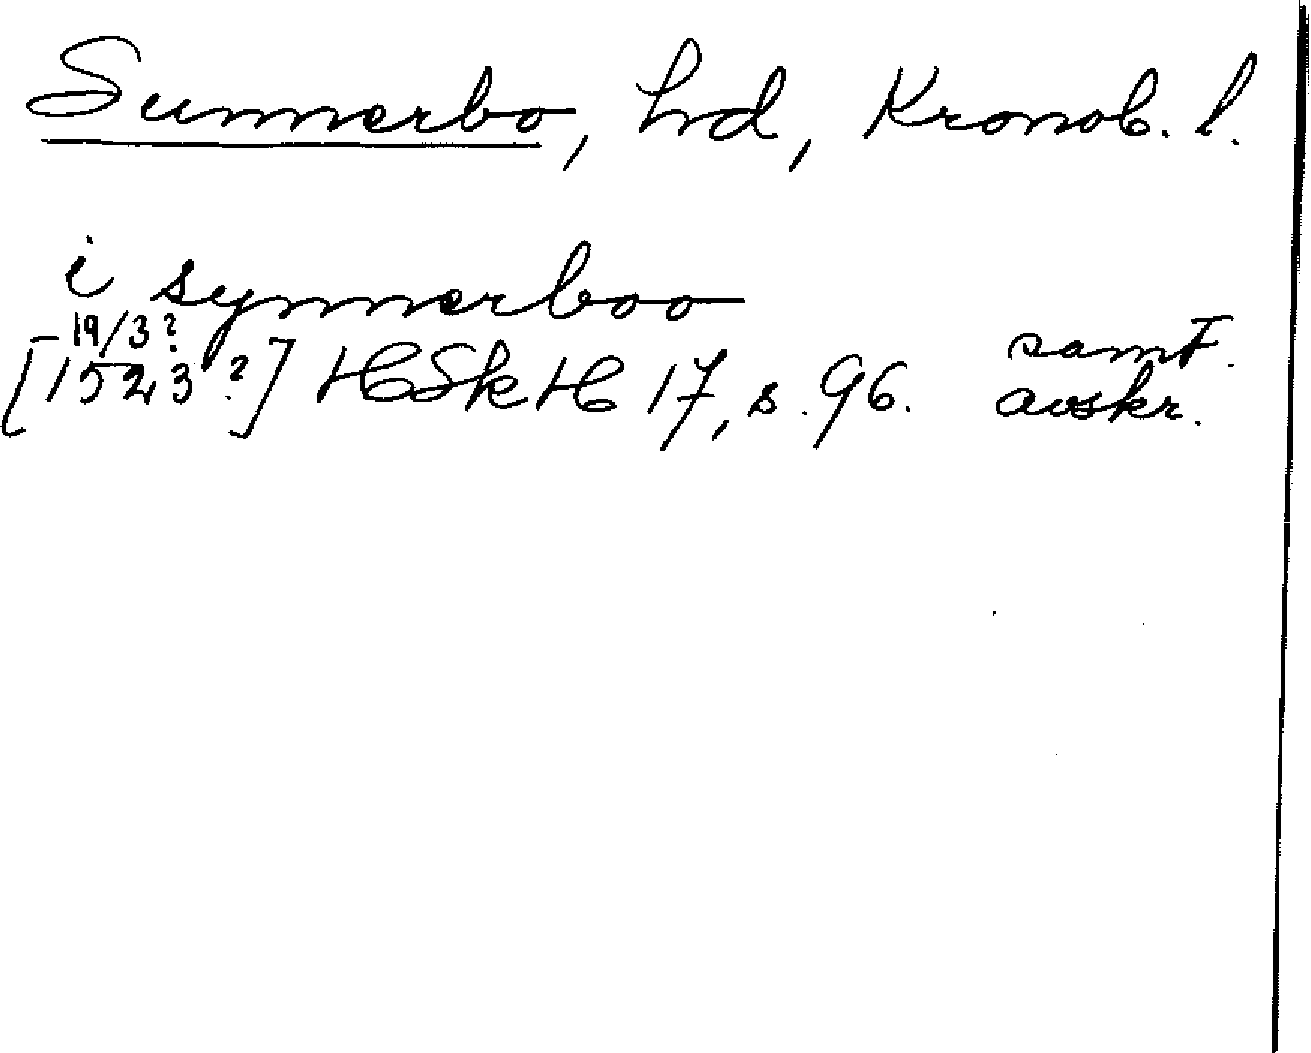 Sunnerbo, hd, Kronob. l.
i synnerboo
19/3?
[1523?] HSkH 17, s. 96.
samt.
avskr.